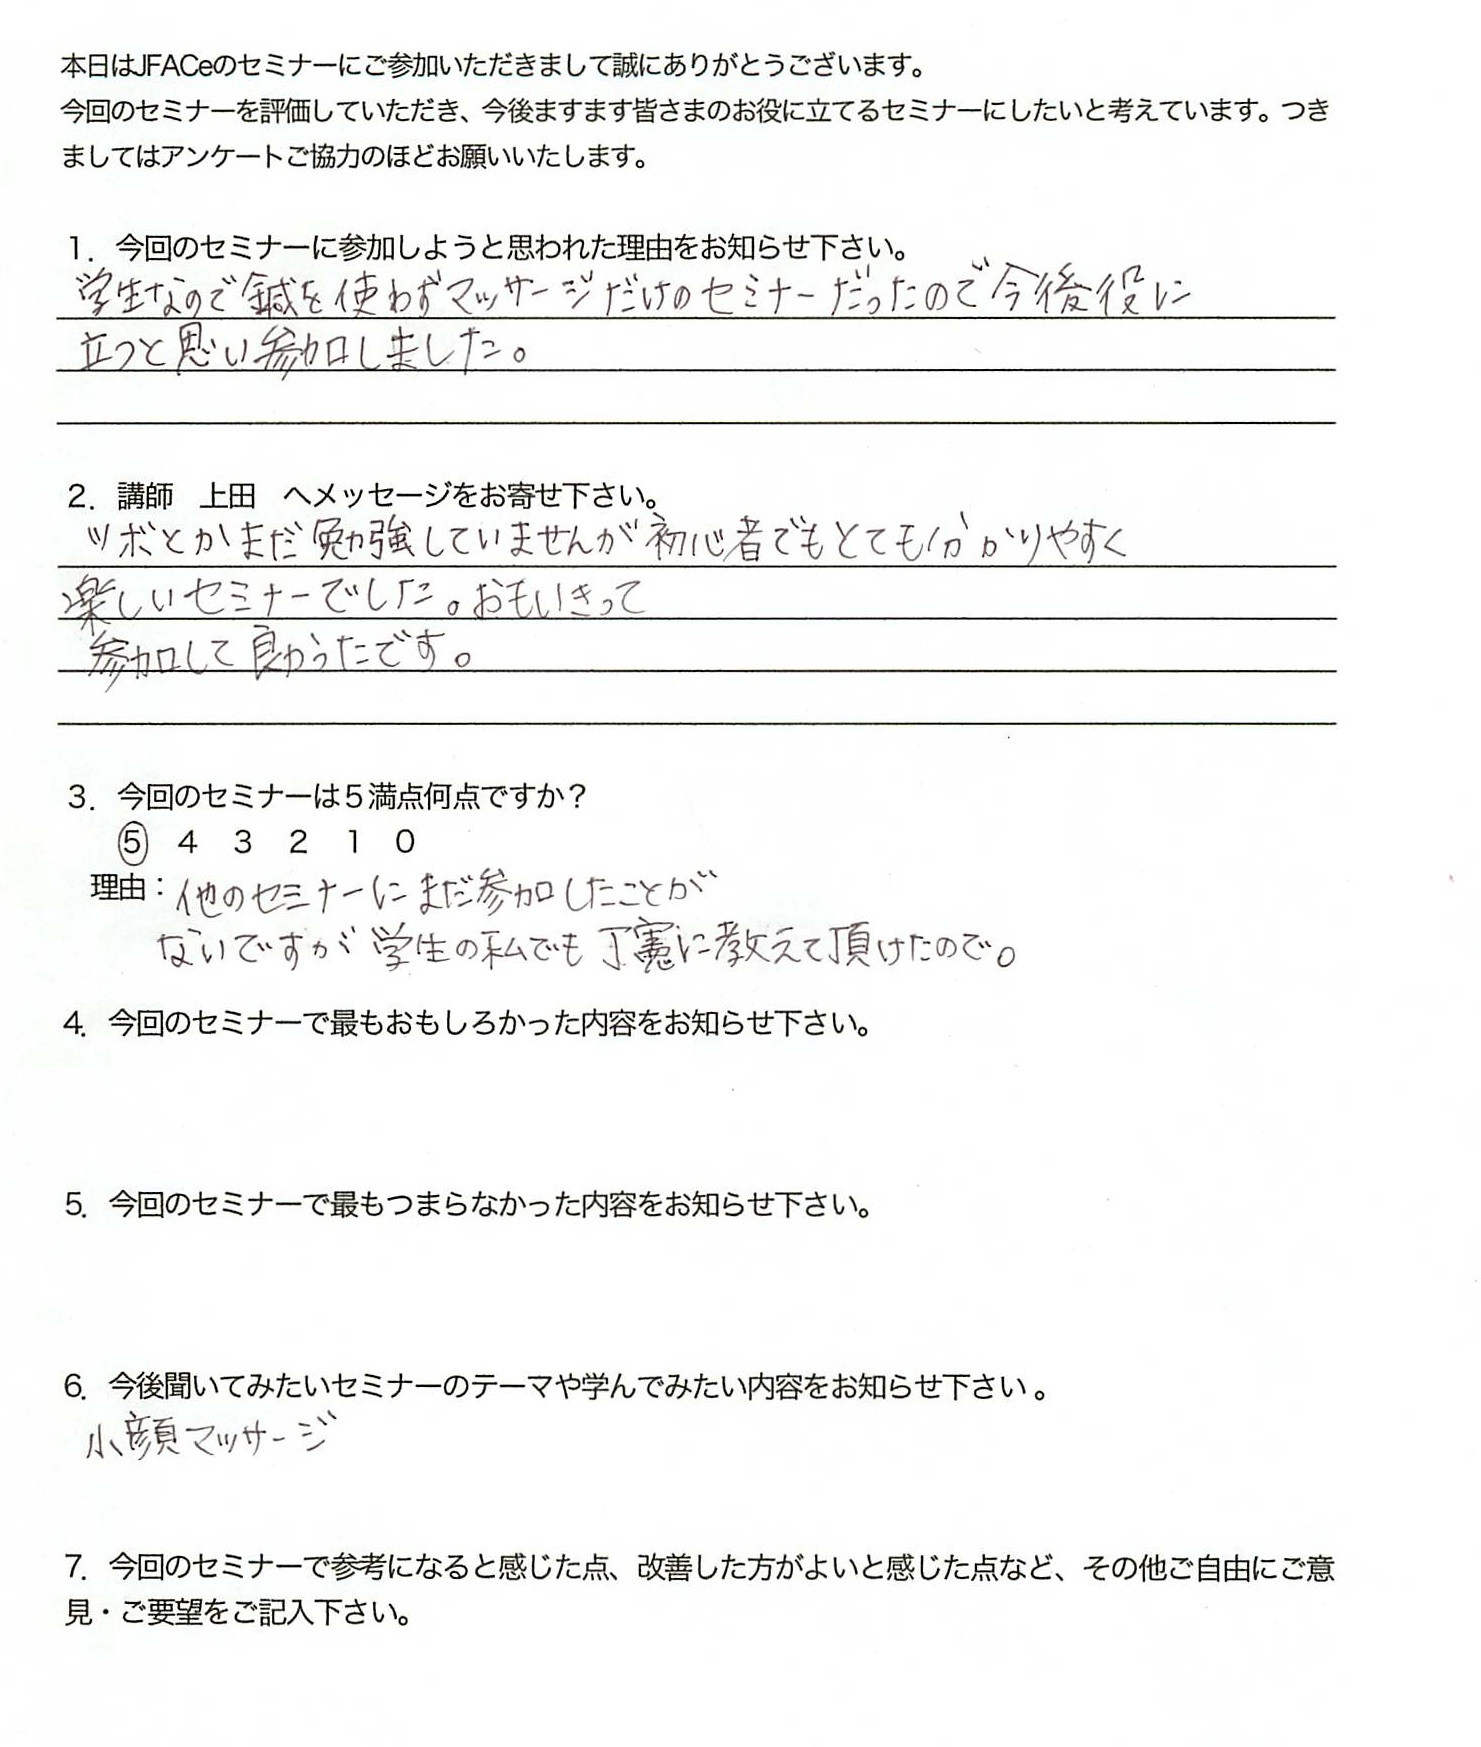 本日はJFACeのセミナーにご参加いただきまして誠にありがとうございます。
今回のセミナーを評価していただき、今後ますます皆さまのお役に立てるセミナーにしたいと考えています。つき
ましてはアンケートご協力のほどお願いいたします。
1．今回のセミナーに参加しようと思われた理由をお知らせ下さい。
学生なので鍼を使わずマッサージだけのセミナーだったので今後役に
立つと思い参加しました。
2．講師　上田　へメッセージをお寄せ下さい。
ツボとかまだ勉強していませんが初心者でもとても分かりやすく
楽しいセミナーでした。おもいきって
参加して良かったです。
3．今回のセミナーは５満点何点ですか？
⑤　4　3　2　1　0
理由：他のセミナーにまだ参加したことが
ないですが学生の私でも丁寧に教えて頂けたので。
4．今回のセミナーで最もおもしろかった内容をお知らせ下さい。
5．今回のセミナーで最もつまらなかった内容をお知らせ下さい。
6．今後聞いてみたいセミナーのテーマや学んでみたい内容をお知らせ下さい。
小顔マッサージ
7．今回のセミナーで参考になると感じた点、改善した方がよいと感じた点など、その他ご自由にご意
見・ご要望をご記入下さい。